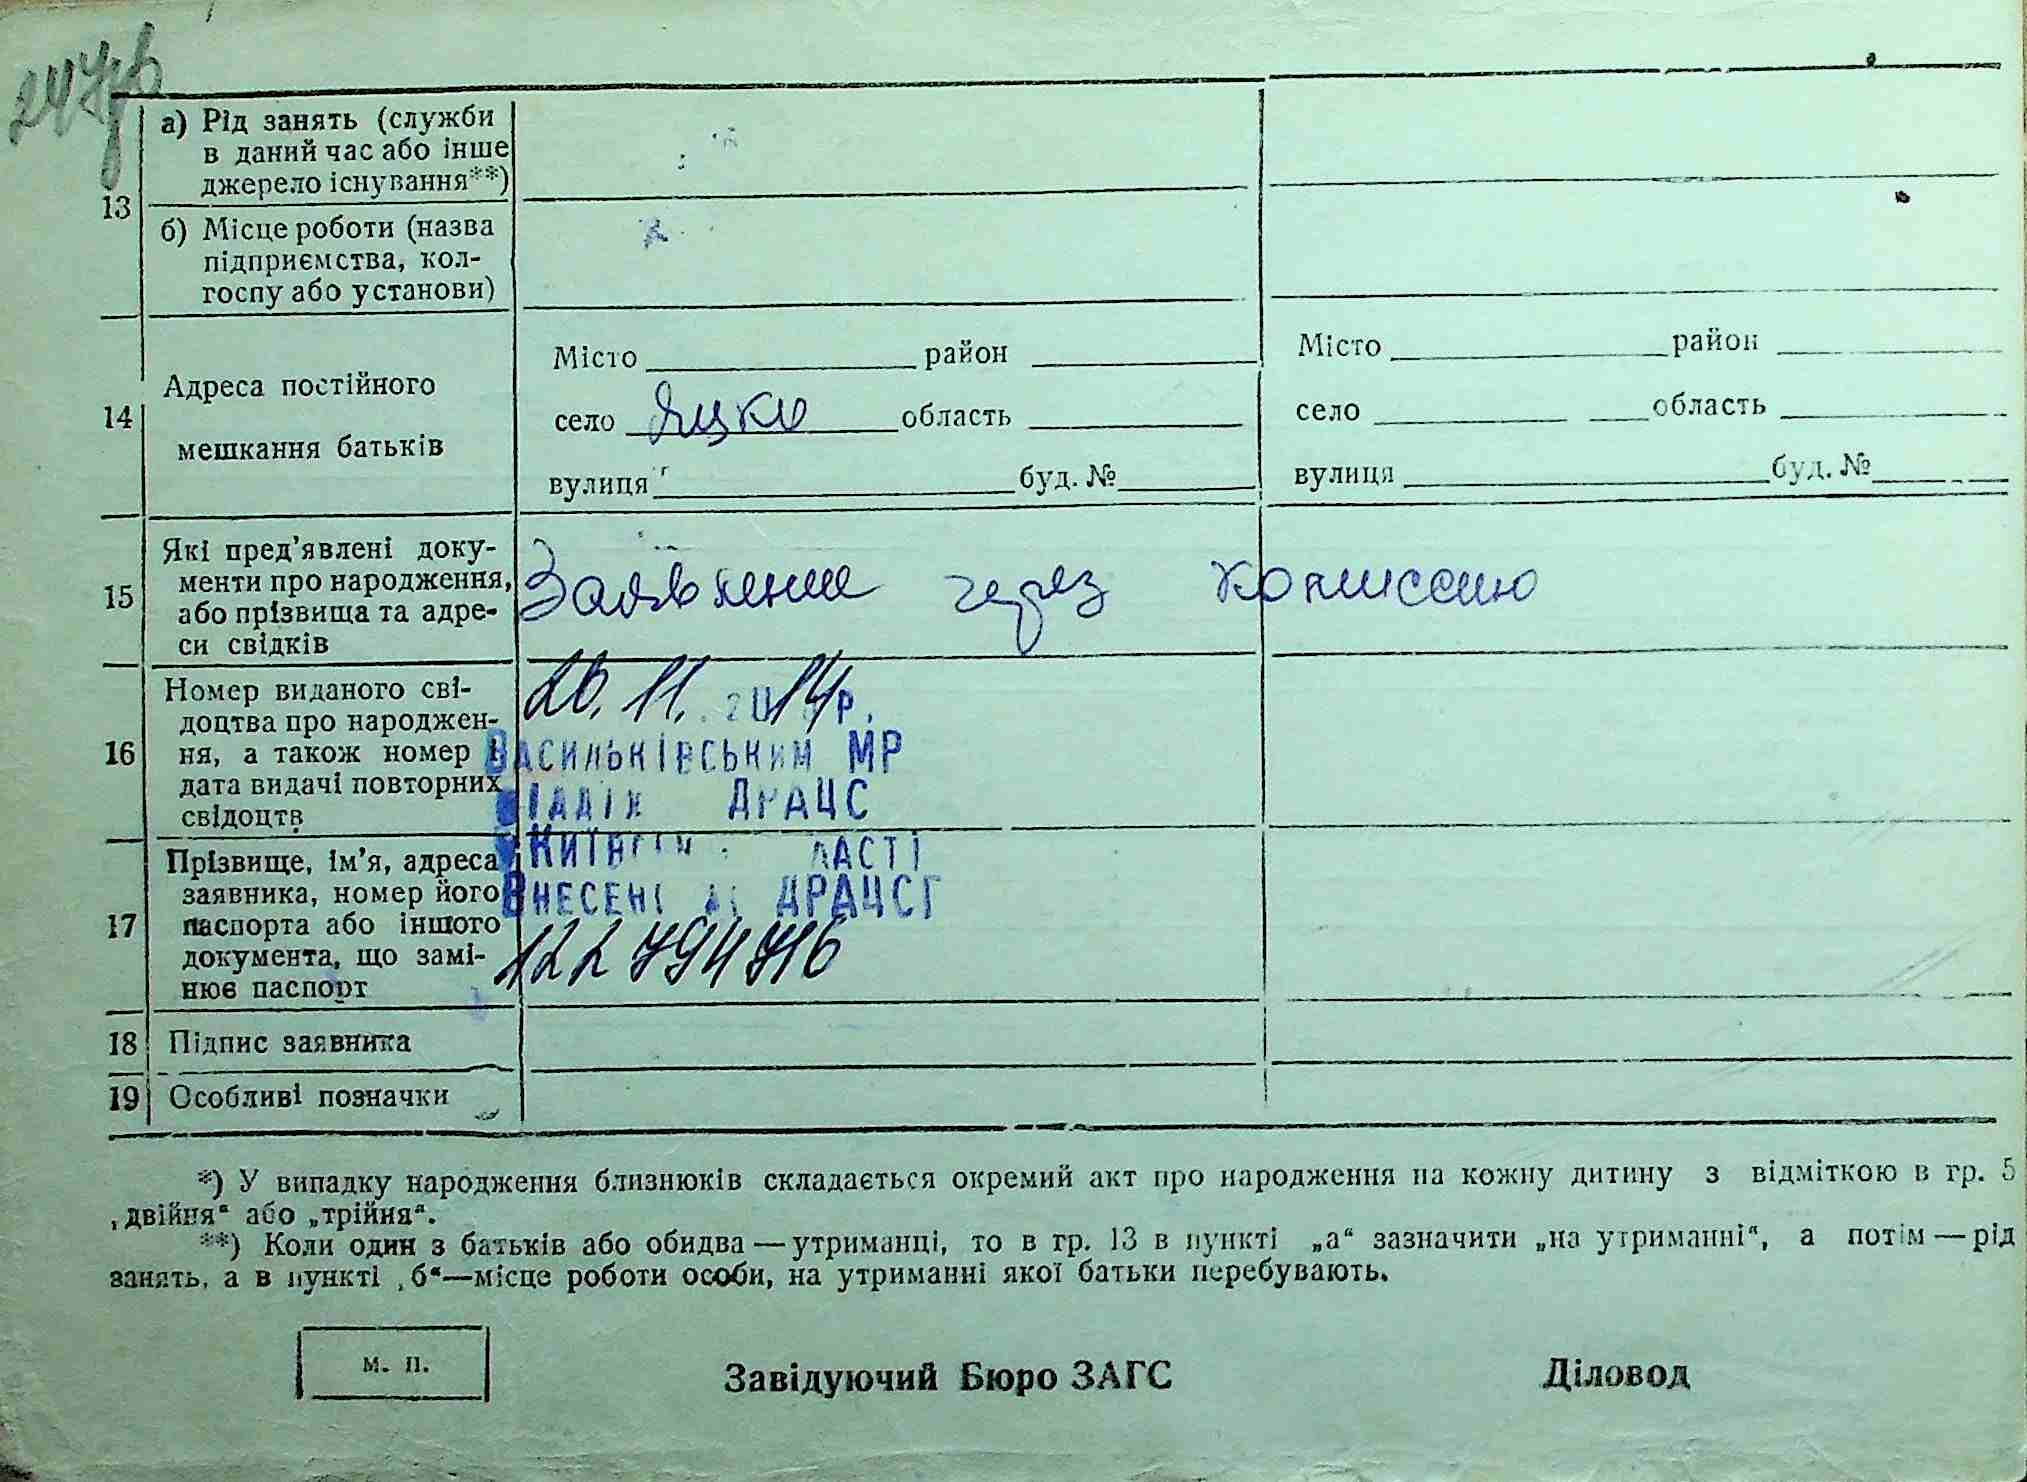 13
а) Рід занять (служби
в даний час або інше
джерело існування**)
б) Місце роботи (назва
підприємства, кол-
госпу або установи)
14
Адреса постійного
мешкання батьків
Місто район
село Яцки область
вулиця буд. №
Місто район
село область
вулиця буд. №
15
Які пред’явлені доку-
менти про народження,
або прізвища та адре-
си свідків
Заявление через комиссию
16
Номер виданого сві-
доцтва про народжен-
ня, а також номер і
дата видачі повторних
свідоцтв
20.11.2014р.
Васильківським МР
ДРАЦС
17
Прізвище, ім’я, адреса
заявника, номер його
паспорта або іншого
документа, що замі-
нює паспорт
ДРАЦСГ
122794716
18
Підпис заявника
19
Особливі позначки
*) У випадку народження близнюків складається окремий акт про народження на кожну дитину з відміткою в гр. 5
„двійня“ або „трійня“.
**) Коли один з батьків або обидва — утриманці, то в гр. 13 в пункті „а“ зазначити „на утриманні“, а потім — рід
занять, а в пункті „б“—місце роботи особи, на утриманні якої батьки перебувають.
м. п.
Завідуючий Бюро ЗАГС
Діловод